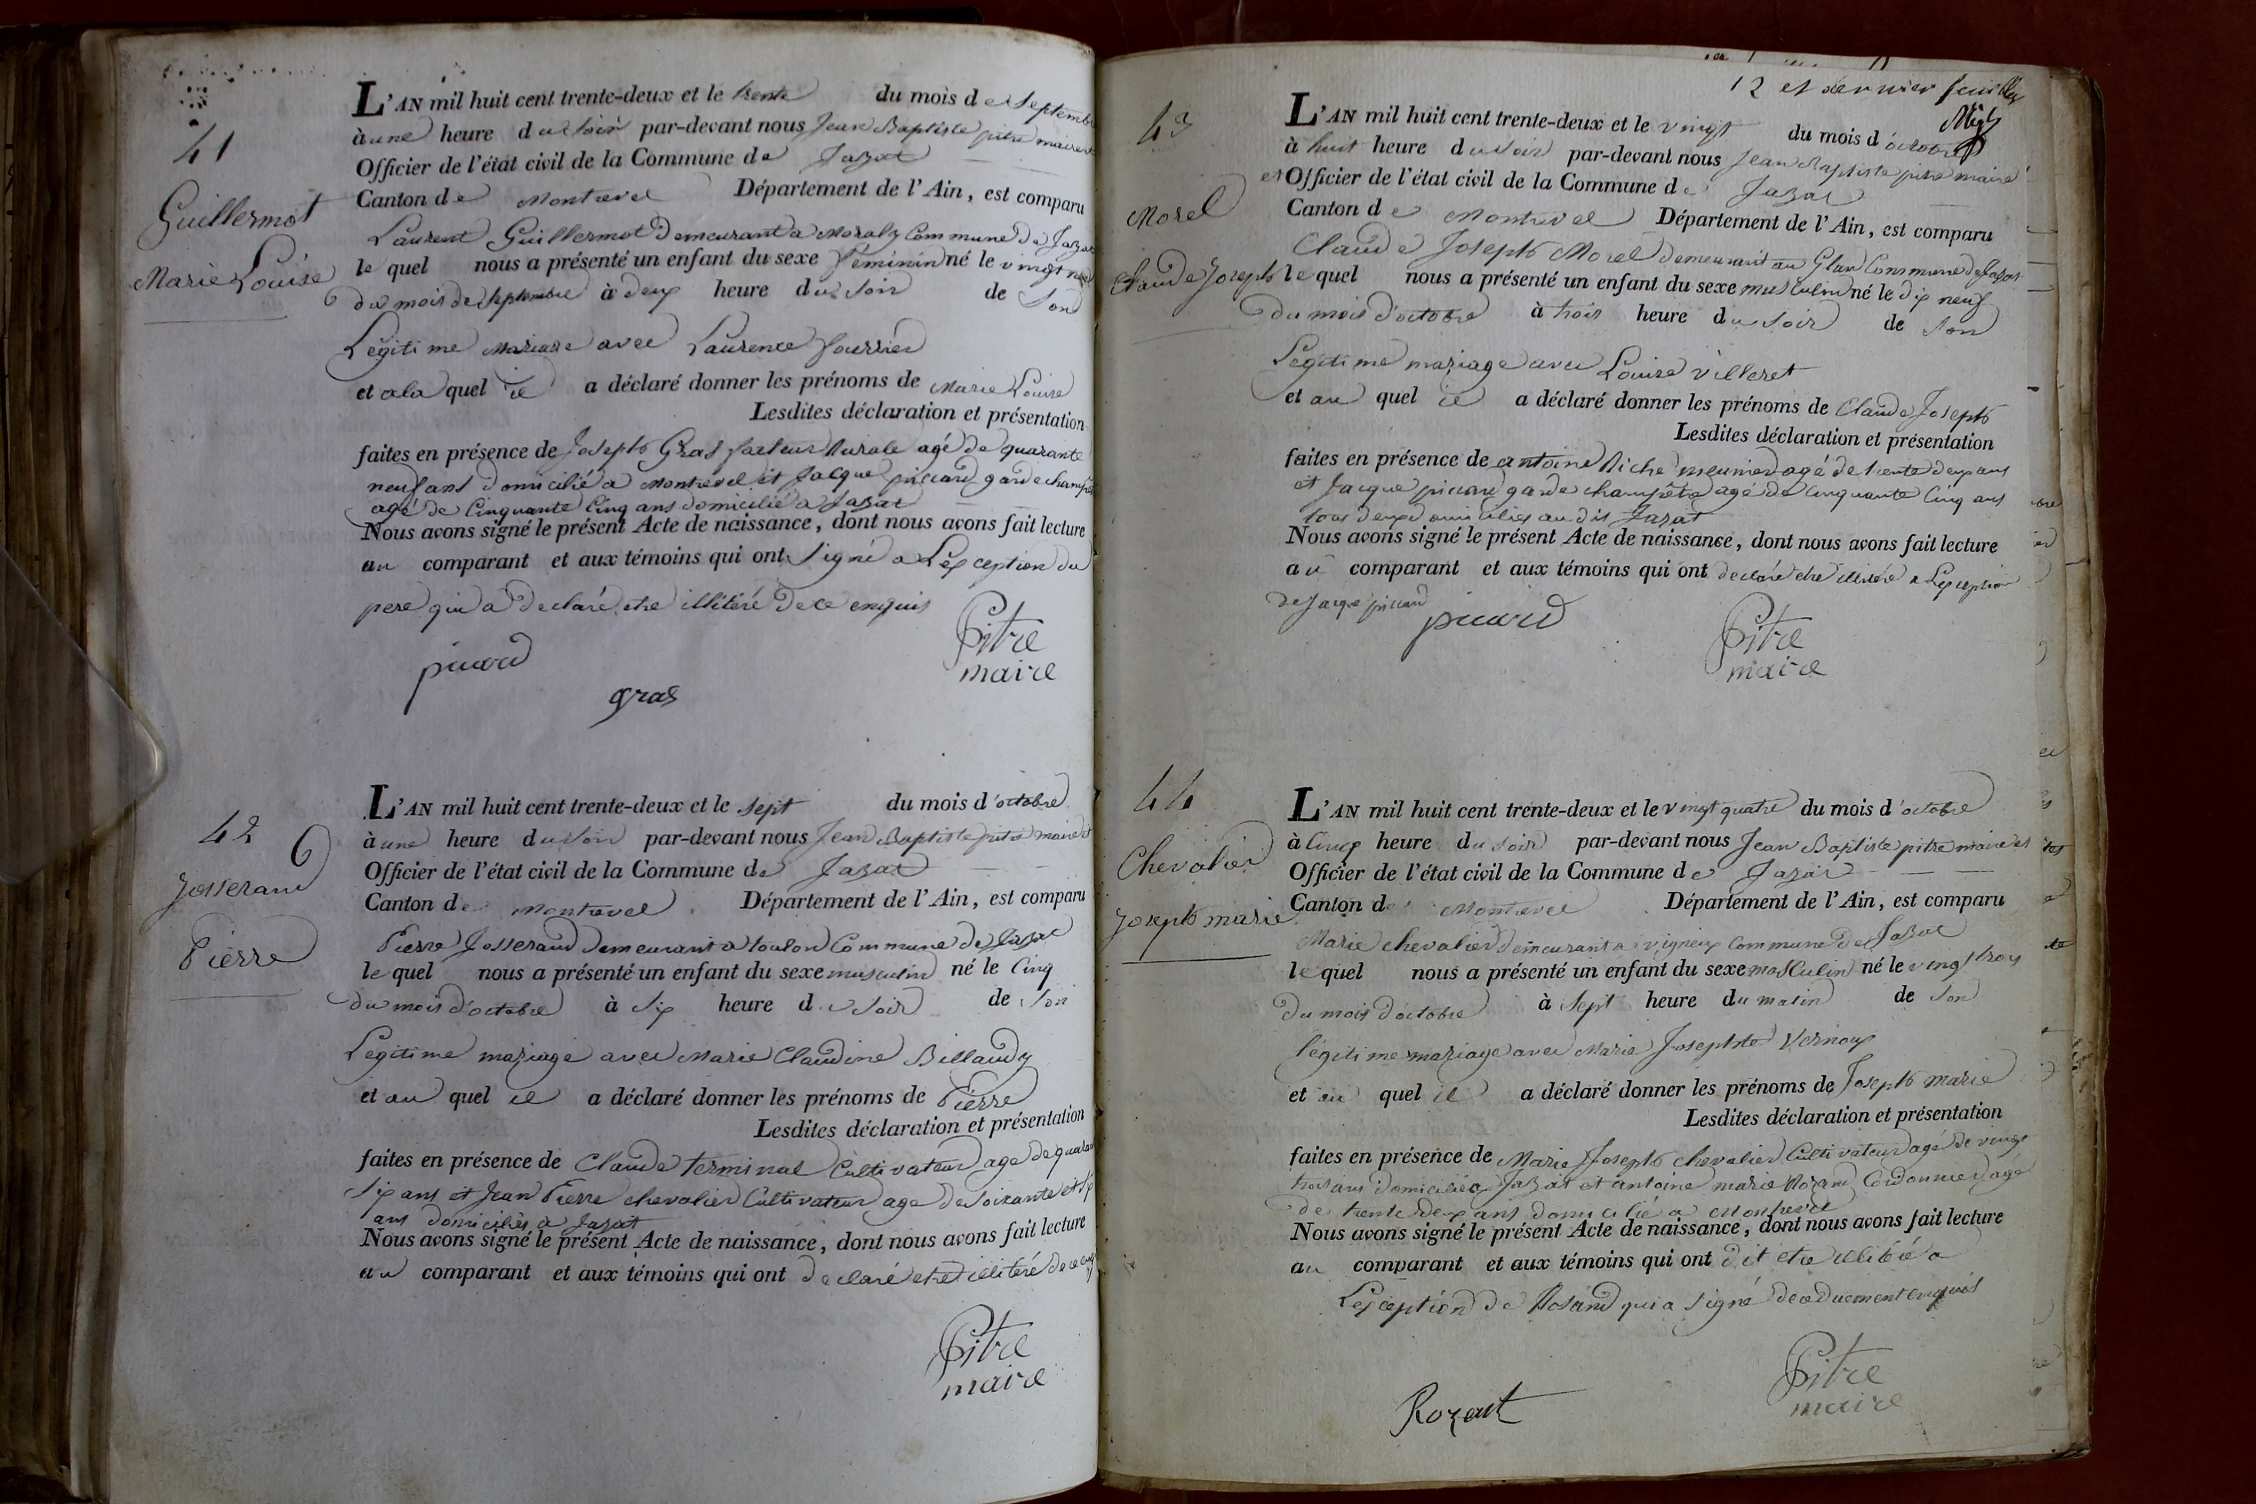 41
Guillermot
Marie Louise
L'AN mil huit cent trente-deux et le trente du mois de Septembre
à une heure du soir par-devant nous Jean Baptiste pitre maire et
Officier de l'état civil de la Commune de Jazat
Canton de Montrevel Département de l'Ain, est comparu
Laurent Guillermot demeurant a Commune de Jazat
le quel nous a présenté un enfant du sexe feminin né le vingt neuf
du mois de Septembre à deux heure du soir de Son
Légitime Mariage avec Laurence fourrier
et a la quel il a déclaré donner les prénoms de Marie Louise
Lesdites déclaration et présentation
faites en présence de Joseph Gras facteur Rurale agé de quarante
neuf ans domicilié a Montrevel et Jacque piccard garde champêtre
agé de Cinquante Cinq ans domicilié a Jazat
Nous avons signé le présent Acte de naissance, dont nous avons fait lecture
au comparant et aux témoins qui ont Signé a L'exception du
pere qui a declaré etre illitéré de ce enquis
picard
gras
Pitre
maire
42
Josserand
Pierre
L'AN mil huit cent trente-deux et le sept du mois d'octobre
à une heure du soir par-devant nous Jean Baptiste pitre maire et
Officier de l'état civil de la Commune de Jazat
Canton de Montrevel Département de l'Ain, est comparu
Pierre Josserand demeurant a toulon Commune de Jazat
le quel nous a présenté un enfant du sexe musculin né le Cinq
du mois d'octobre à Six heure du Soir de Son
Légitime mariage avec Marie Claudine Billaudy
et au quel il a déclaré donner les prénoms de Pierre
Lesdites déclaration et présentation
faites en présence de Claude terminal Cultivateur age de quarante
Six ans et Jean Pierre chevalier Cultivateur age de Soixante et Six
ans domiciliés a Jazat
Nous avons signé le présent Acte de naissance, dont nous avons fait lecture
au comparant et aux témoins qui ont declaré etre illitéré de ce enquis
Pitre
maire
12 et dernier feuillet
43
Morel
Claude Joseph
L'AN mil huit cent trente-deux et le vingt du mois d'octobre
à huit heure du soir par-devant nous Jean Baptiste pitre maire
et Officier de l'état civil de la Commune de Jazat
Canton de Montrevel Département de l'Ain, est comparu
Claude Joseph Morel demeurant au Glan Commune de Jazat
le quel nous a présenté un enfant du sexe musculin né le dix neuf
du mois d'octobre à trois heure du soir de Son
Légitime mariage avec Louise villeret
et au quel il a déclaré donner les prénoms de Claude Joseph
Lesdites déclaration et présentation
faites en présence de antoine Riche meunier agé de trente deux ans
et Jacque piccard garde champêtre agé de Cinquante Cinq ans
tous deux domiciliés au dit Jazat
Nous avons signé le présent Acte de naissance, dont nous avons fait lecture
au comparant et aux témoins qui ont declaré etre illitéré a L'exception
de Jacque piccard
picard
Pitre
maire
44
Chevalier
Joseph marie
L'AN mil huit cent trente-deux et le vingt quatre du mois d'octobre
à Cinq heure du soir par-devant nous Jean Baptiste pitre maire et
Officier de l'état civil de la Commune de Jazat
Canton de Montrevel Département de l'Ain, est comparu
Marie chevalier demeurant a vigneux Commune de Jazat
le quel nous a présenté un enfant du sexe masculin né le vingt trois
du mois d'octobre à Sept heure du matin de Son
légitime mariage avec Marie Josephte Vernoux
et au quel il a déclaré donner les prénoms de Joseph marie
Lesdites déclaration et présentation
faites en présence de Marie Joseph chevalier Cultivateur agé de vingt
trois ans domicilié a Jazat et antoine marie Rozand Cordonnier agé
de trente deux ans domicilié a Montrevel
Nous avons signé le présent Acte de naissance, dont nous avons fait lecture
au comparant et aux témoins qui ont dit etre a
L'exception de Rosand qui a signé de ce duement enquis
Rozant
Pitre
maire